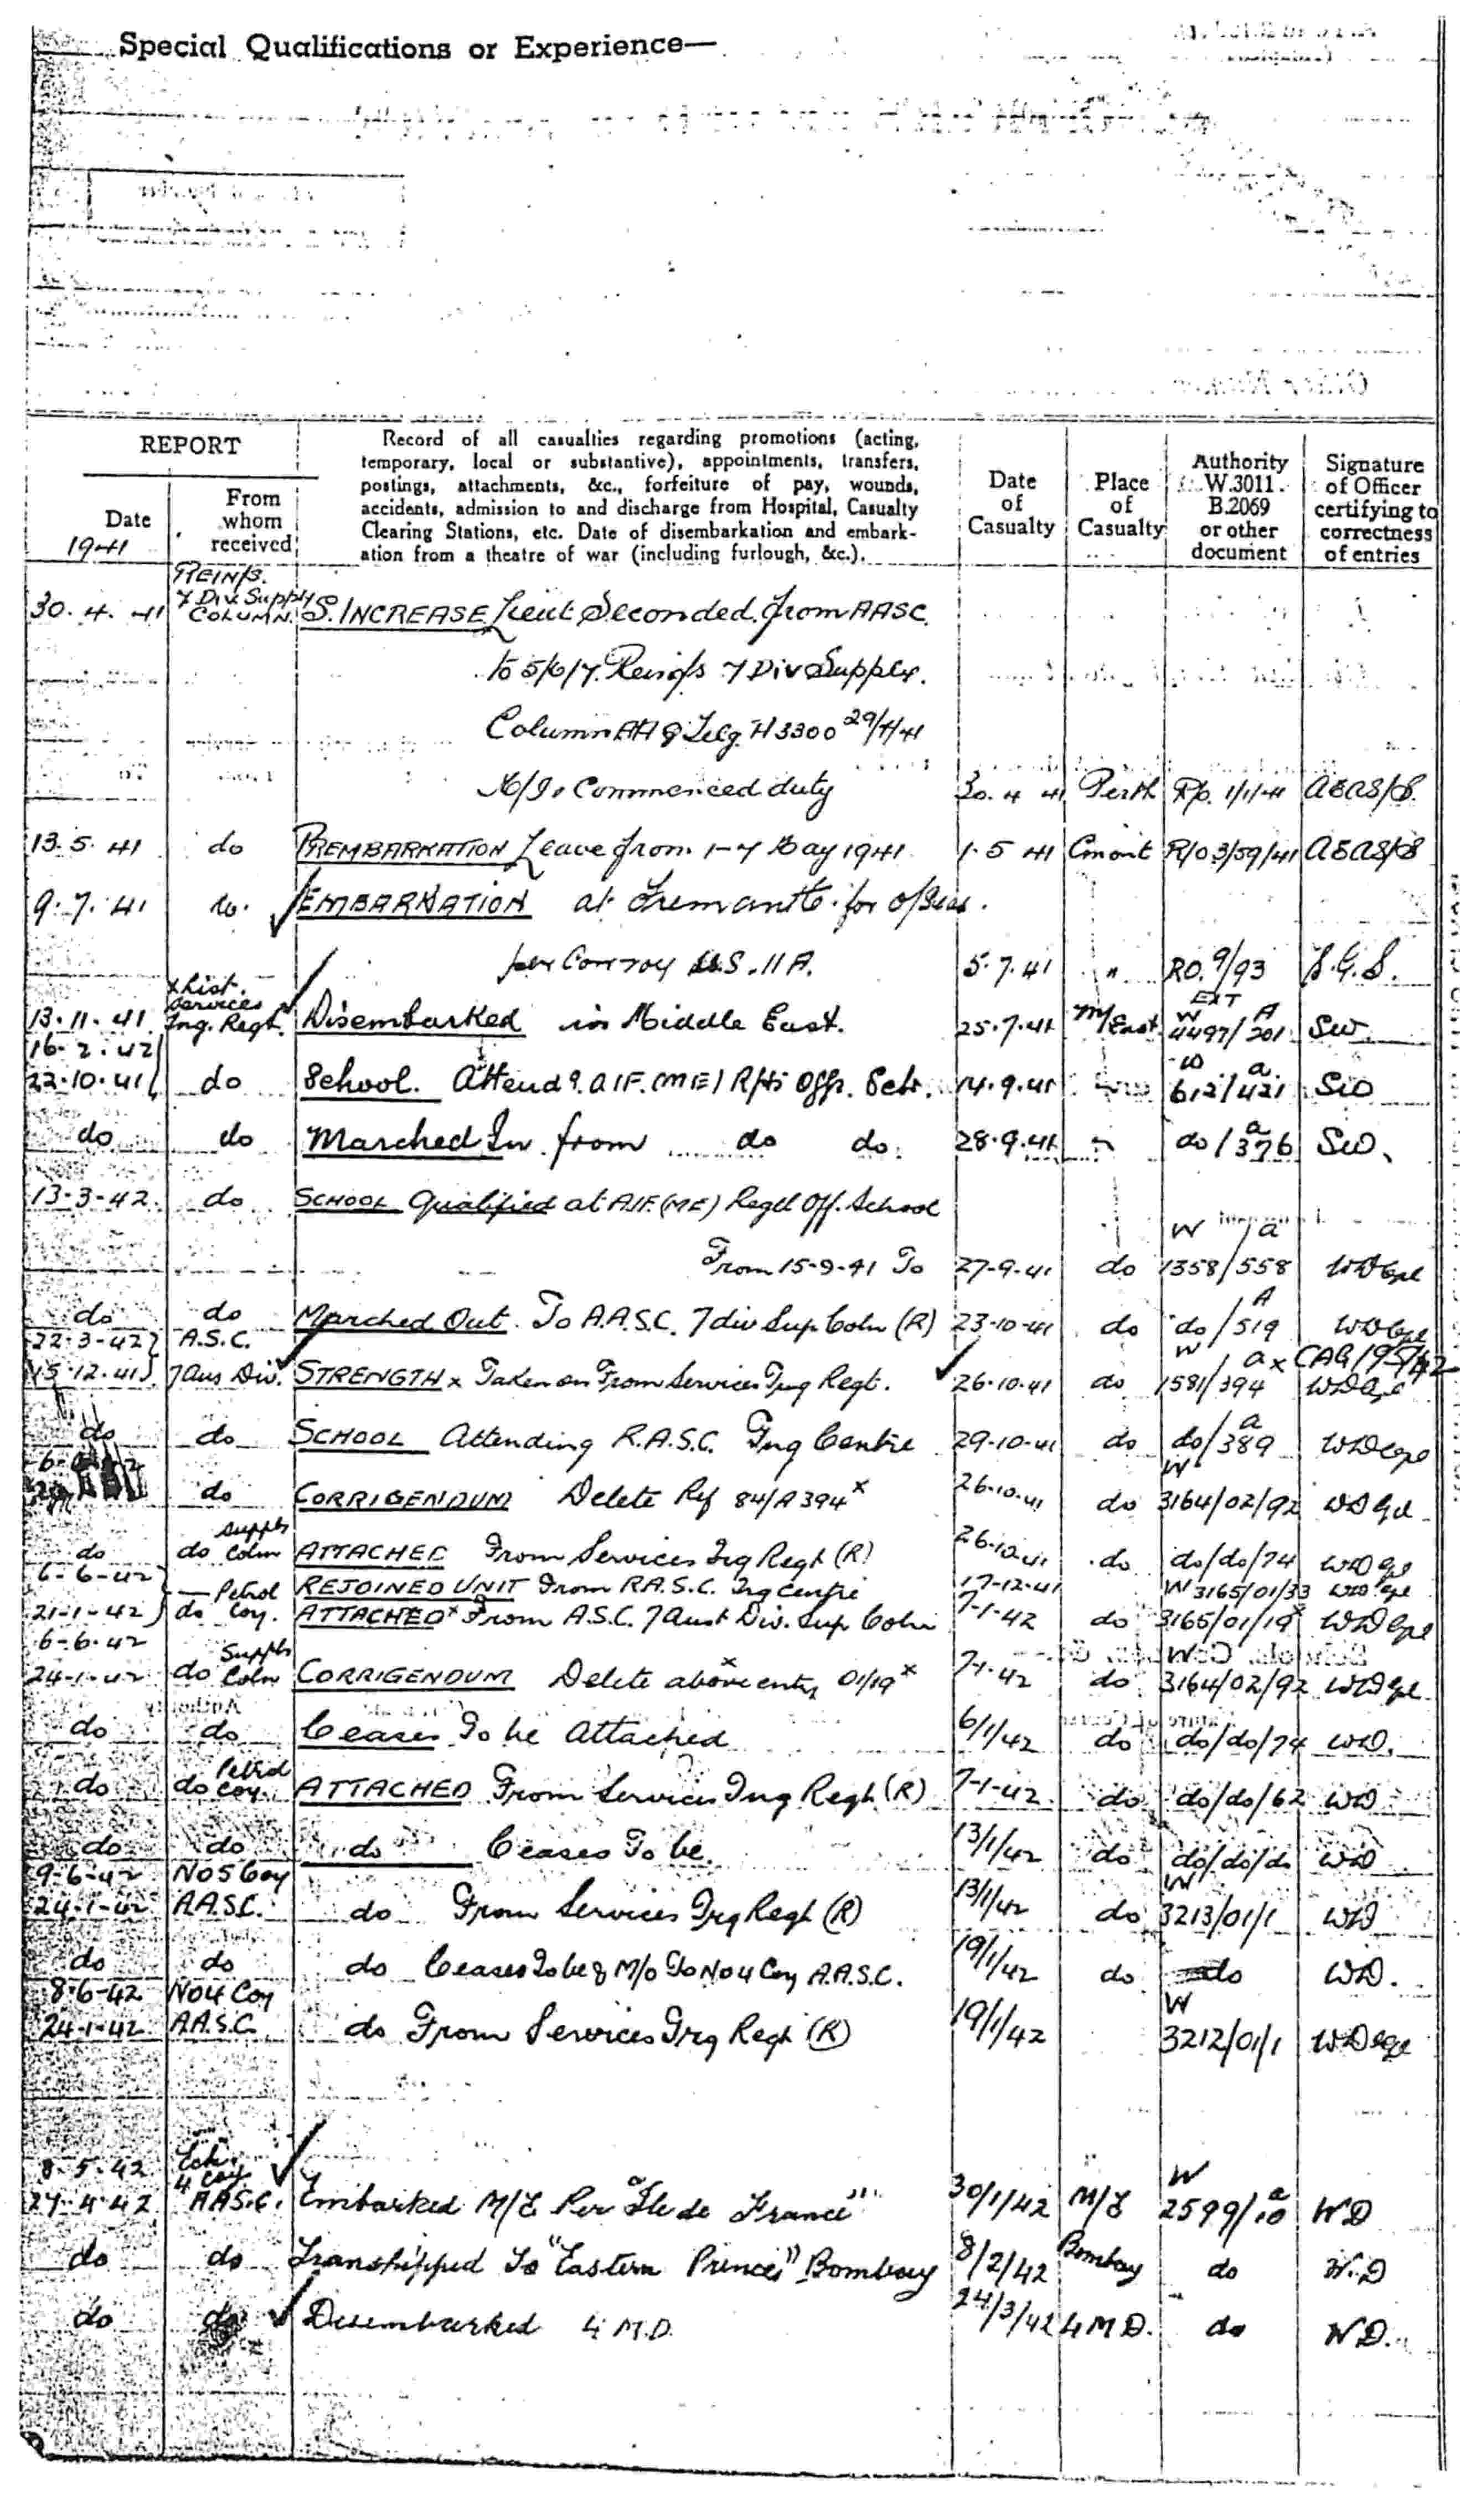 Special Qualifications or Experience—
REPORT
Date
1941
From
whom
received
Record of all casualties regarding promotions (acting,
temporary, local or substantive), appointments, transfers,
postings, attachments, &c., forfeiture of pay, wounds,
accidents, admission to and discharge from Hospital, Casualty
Clearing Stations, etc. Date of disembarkation and embark-
ation from a theatre of war (including furlough, &c.).
Date
of
Casualty
Place
of
Casualty
Authority
W.3011.
B.2069
or other
document
Signature
of Officer
certifying to
correctness
of entries
REINFS.
7 Div Supply
30. 4. 41 COLUMN. S. INCREASE Lieut Seconded from AASC
to 5/6/7. Reinfs 7 Div Supply.
Column AHQ Telg. H3300 29/4/41
Commenced duty 30. 4 41 Perth 1/1/41
13. 5. 41 do PREMBARKATION Leave from 1-7 May 1941 1. 5 41 R/O 3/59/41
9. 7. 41 do. EMBARKATION at Fremantle for O/Seas.
per Convoy U.S. 11A. 5. 7. 41 " RO. 9/93
Services
13. 11. 41 Tng. Regt. Disembarked in Middle East. 25. 7. 41 M/East W EXT A 4497/201 SW.
16. 2. 42
22. 10. 41 do School. Attendg. AIF. (ME) 14. 9. 41 W a 612/421 SW
do do Marched In from do do. 28. 9. 41 " do/a 376 SW.
13-3-42. do SCHOOL Qualified at AIF. (ME) Regtl Off. School
From 15-9-41 To 27-9-41 do W a 1358/558
do do Marched Out. To A.A.S.C. 7 div Sup Coln (R) 23-10-41 do do/A 519
22-3-42 A.S.C.
15-12-41 7 Aus Div. STRENGTH x Taken on From Services Tng Regt. 26-10-41 do W 1581/a 394 x CAG/195/42
do do SCHOOL Attending R.A.S.C. Tng Centre 29-10-41 do do/a 389
do CORRIGENDUM Delete Ref 84/A 394 x 26-10-41 do W 3164/02/92
do do Supply Coln ATTACHED From Services Trg Regt (R) 26-10-41 do do/do/74
6-6-42 REJOINED UNIT From R.A.S.C. Trg Centre 17-12-41 W 3165/01/33
21-1-42 do Petrol Coy. ATTACHED x From A.S.C. 7 Aust Div. Sup Coln 7-1-42 do 3165/01/19 x
6-6-42
24-1-42 do Supply Coln CORRIGENDUM Delete above x entry 01/19 x 7-1-42 do W 3164/02/92
do do Ceases To be Attached 6/1/42 do do/do/74 WD.
do do Petrol Coy. ATTACHED From Services Tng Regt. (R) 7-1-42. do do/do/62 WD
do do do Ceases To be. 13/1/42 do do/do/do WD
9-6-42 No 5 Coy
24-1-42 A.A.S.C. do From Services Trg Regt (R) 13/1/42 do W 3213/01/1 WD
do do do Ceases To be & M/O To No 4 Coy A.A.S.C. 19/1/42 do do WD.
8-6-42 No 4 Coy
24-1-42 A.A.S.C. do From Services Trg Regt (R) 19/1/42 W 3212/01/1
8. 5. 42 Ech.
27. 4. 42 4 Coy AASC. Embarked M/E Per "Ile de France" 30/1/42 M/E W 2599/a 10 WD
do do Transhipped To "Eastern Prince" Bombay 8/2/42 Bombay do W.D
do do Disembarked 4 M.D. 24/3/42 4 M D. do WD.